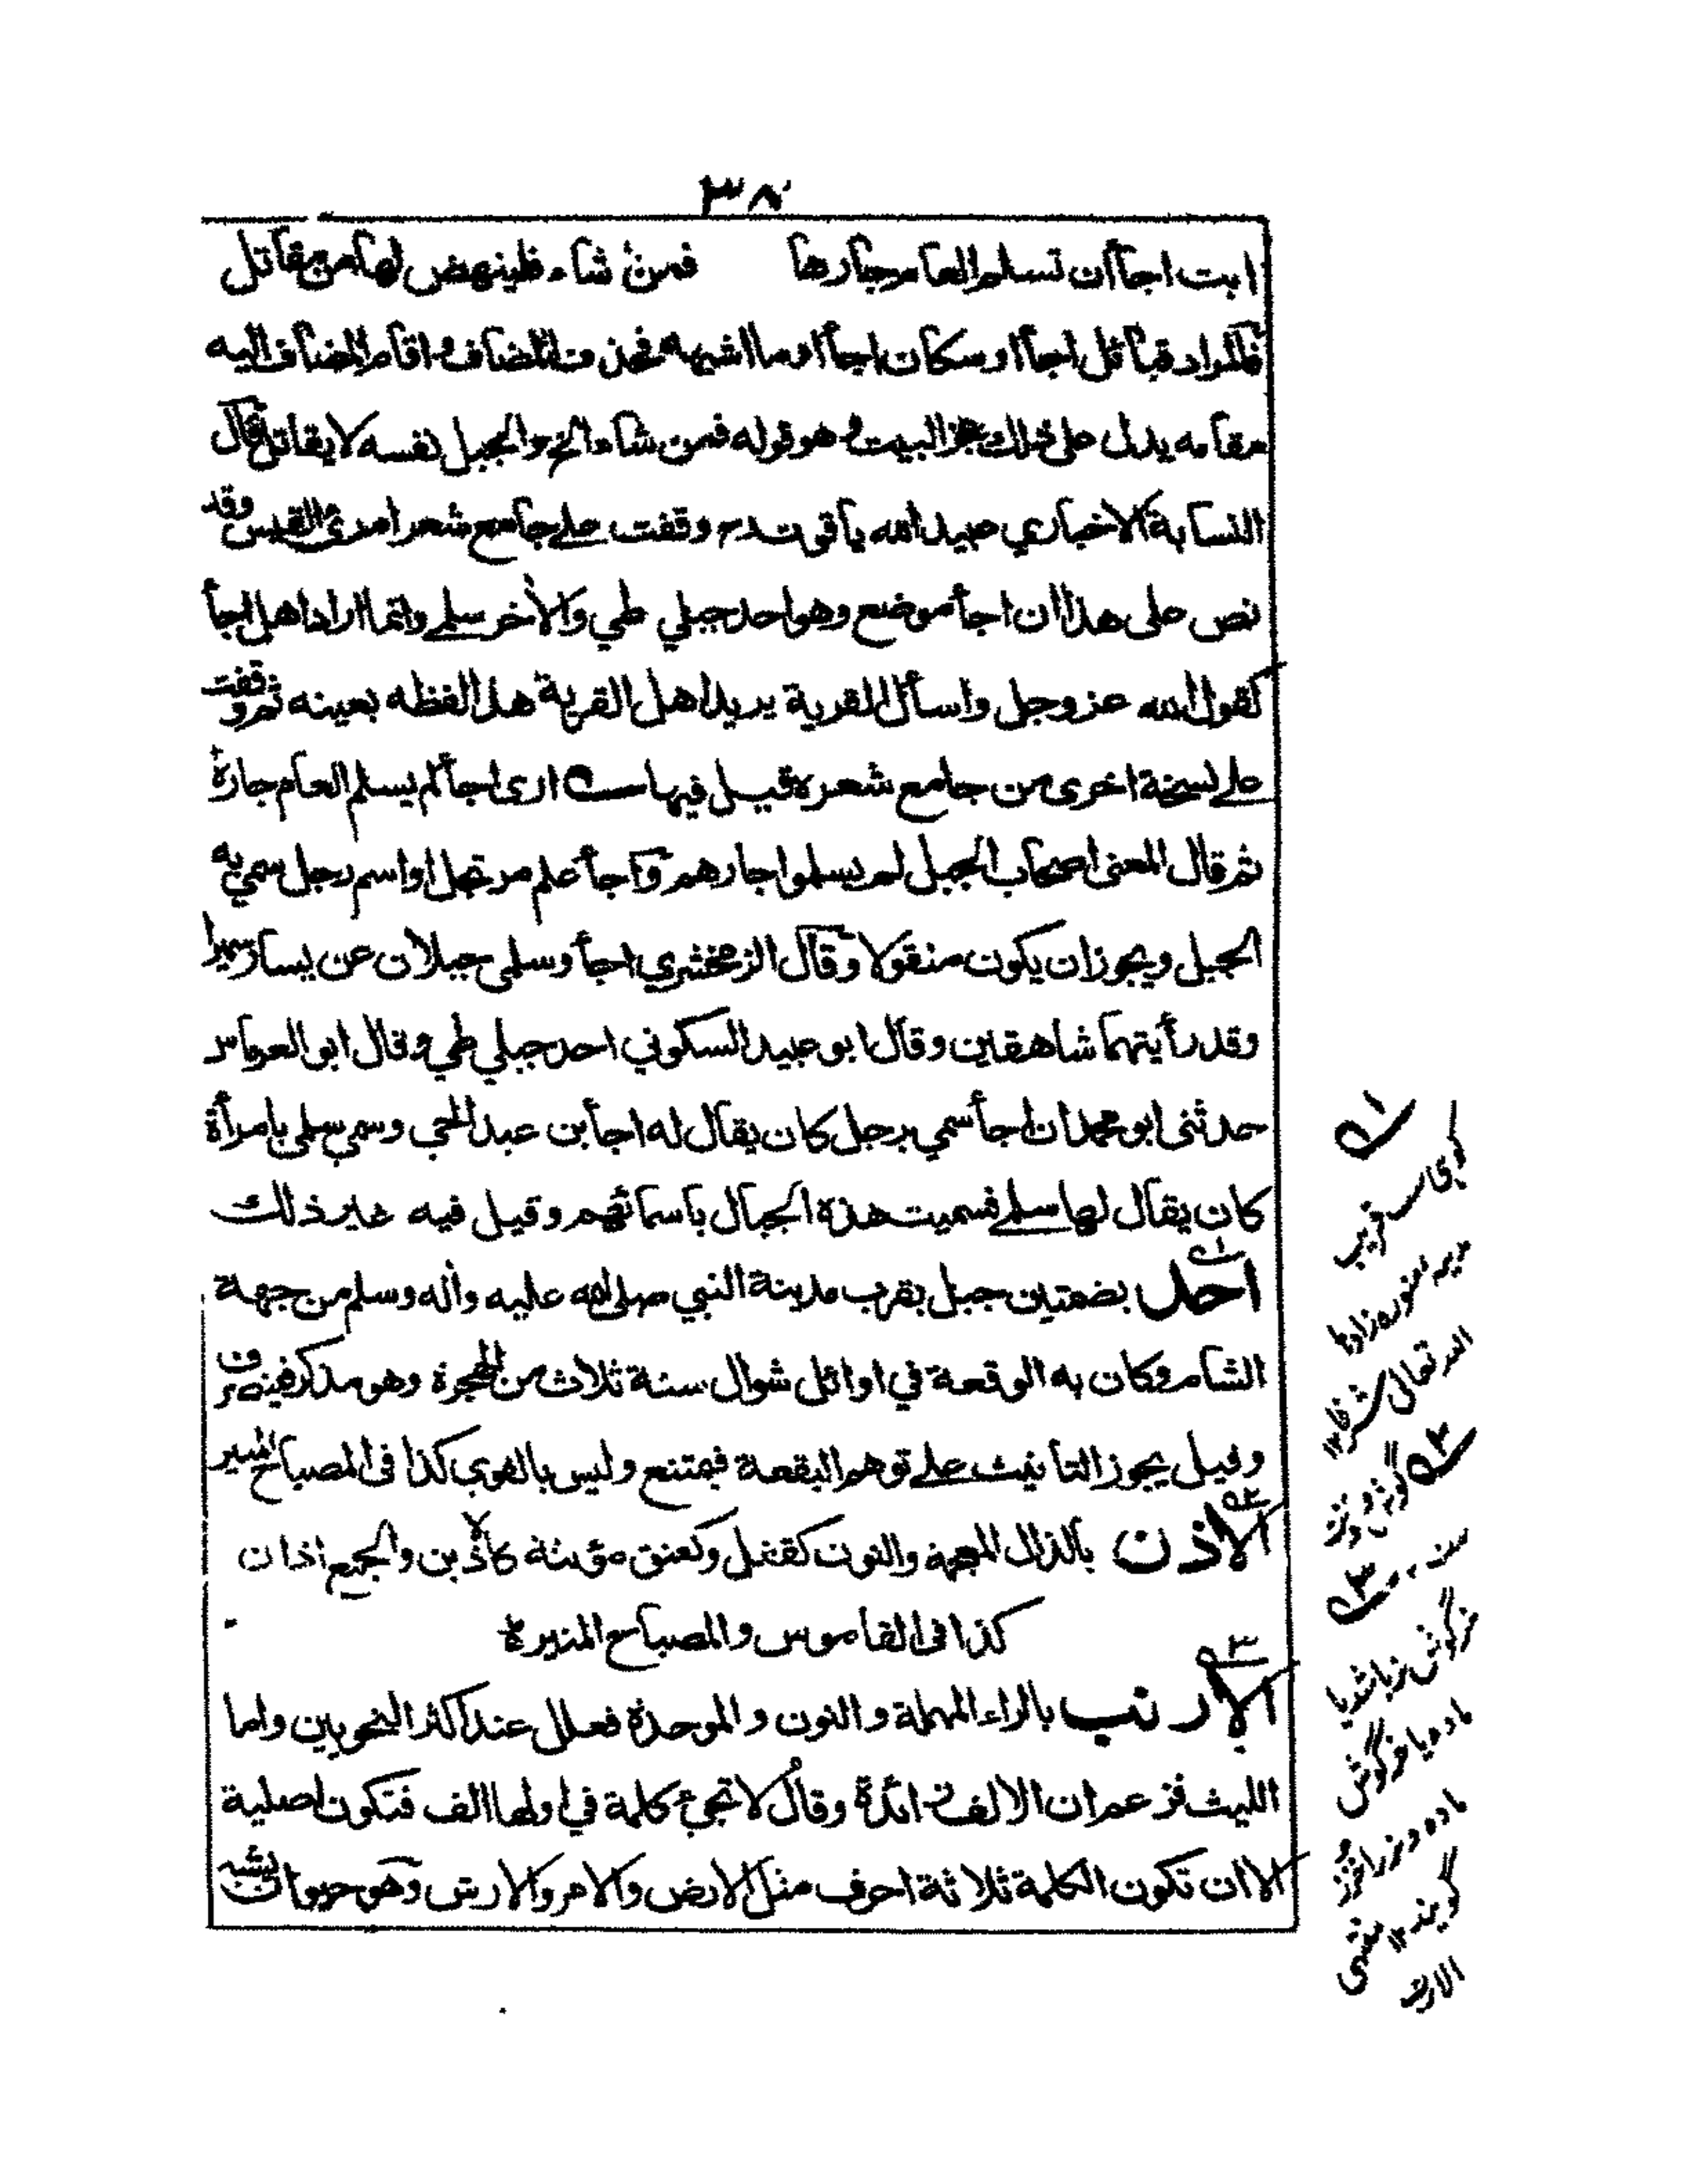 ٣٨
ابت اجأ أن تسلم العام جارها فمن شاء فلينهض لها من مقاتل
فالمراد قبائل اجأ او سكان اجأ او ما اشبهه فحذف المضاف و اقام المضاف اليه
مقامه يدل على ذلك عجز البيت و هو قوله فمن شاء الخ و الجبل نفسه لا يقاتل قال
النسابة الاخباري عبيد الله ياقوت رح وقفت على جامع شعر امرئ القيس وقد
نص على هذا ان اجأ موضع وهو احد جبلي طي والأخر سلمى وانما اراد اهل اجأ
كقول الله عز وجل واسأل القرية يريد اهل القرية هذا لفظه بعينه ثم وقفت
على نسخة اخرى من جامع شعره قيل فيها ارى اجأ لم يسلم العام جارة
ثم قال المعنى اصحاب الجبل لم يسلموا جارهم و اجأ علم مرتجل او اسم رجل سمي به
الجبل ويجوز ان يكون منقولا وقال الزمخشري اجأ وسلمى جبلان عن يسار سميرا
وقد رأيتهما شاهقين وقال ابو عبيد السكوني احد جبلي طي و قال ابو العرماس
حدثنى ابو محمد ان اجأ سمي برجل كان يقال له اجأ بن عبد الحي وسمي سلمى بامرأة
كان يقال لها سلمى فسميت هذه الجبال باسمائهم وقيل فيه غير ذلك
احد بضمتين جبل بقرب مدينة النبي صلى الله عليه وأله وسلم من جهة
الشام وكان به الوقعة في اوائل شوال سنة ثلاث من الهجرة وهو مذكر فينصرف
وقيل يجوز التأنيث على توهم البقعة فيمتنع وليس بالقوي كذا فى المصباح المنير
الاذن بالذال المعجمة والنون كقفل وكعنق مؤنثة كالأذين والجمع اذان
كذا فى القاموس والمصباح المنير
الارنب بالراء المهملة والنون والموحدة فعلل عند اكثر النحويين واما
الليث فزعم ان الالف زائدة وقال لا تجيء كلمة في اولها الف فتكون اصلية
الا ان تكون الكلمة ثلاثة احرف مثل الارض والامر والارش وهو حيوان يشبه
١
كوهى است قريب
مدينه منوره زادها
الله تعالى شرفا
٢ گوش
٣
خرگوش نر باشد يا
ماده يا خرگوش
ماده و نر را خزز
گويند
منتهى
الارب